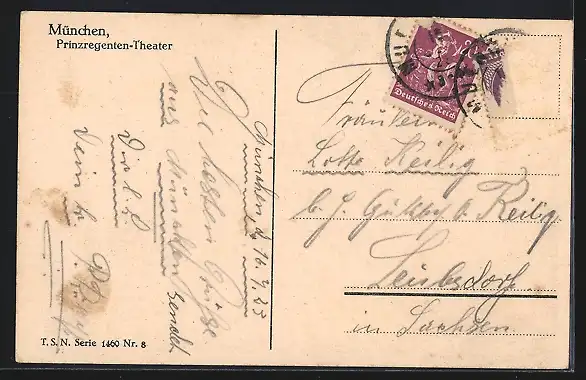 München,
Prinzregenten-Theater
Deutsches Reich
München d. 16.7.23
Die besten Grüße
aus München sendet
Dir l.
Dein
Fräulein
Lotte Heilig
b. H. Heilig
Leubsdorf
in Sachsen
T. S. N. Serie 1460 Nr. 8